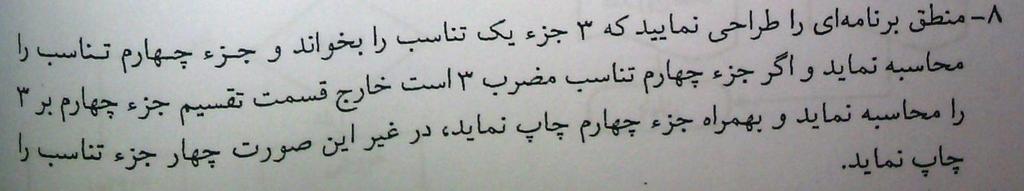 ۸- منطق برنامه‌ای را طراحی نمایید که ۳ جزء یک تناسب را بخواند و جزء چهارم تناسب را
محاسبه نماید و اگر جزء چهارم تناسب مضرب ۳ است خارج قسمت تقسیم جزء چهارم بر ۳
را محاسبه نماید و بهمراه جزء چهارم چاپ نماید، در غیر این صورت چهار جزء تناسب را
چاپ نماید.